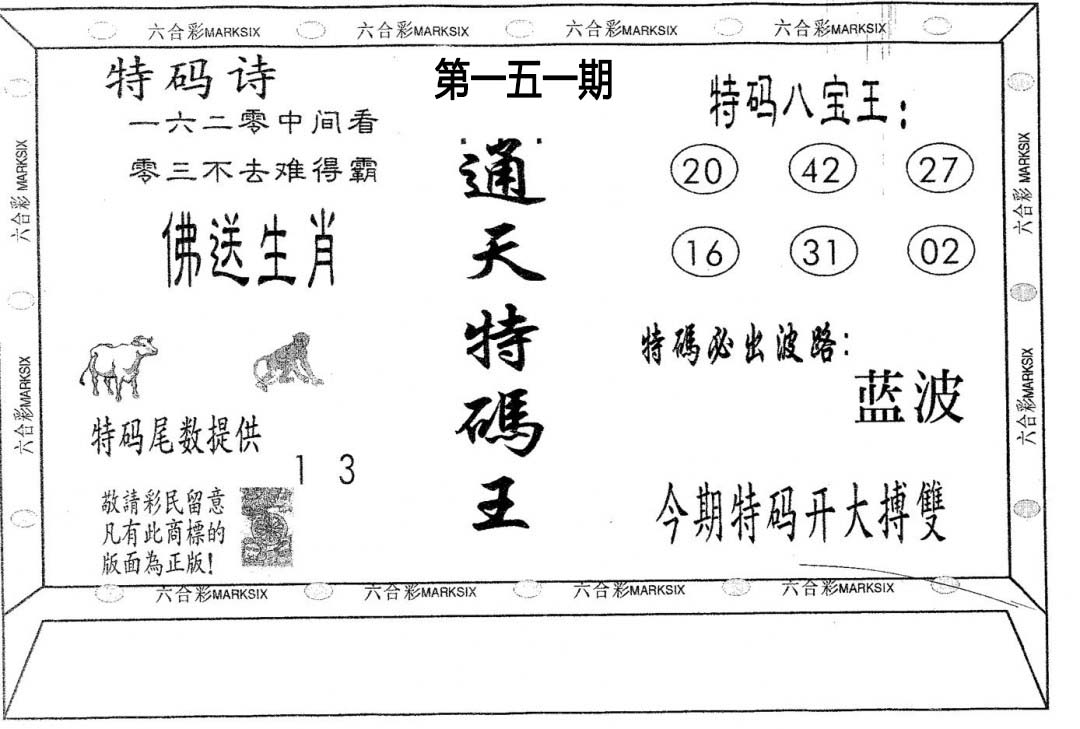 六合彩MARKSIX
六合彩MARKSIX
六合彩MARKSIX
六合彩MARKSIX
六合彩 MARKSIX
六合彩MARKSIX
特码诗
一六二零中间看
零三不去难得霸
佛送生肖
特码尾数提供
1 3
敬請彩民留意
凡有此商標的
版面為正版!
第一五一期
通天特碼王
特码八宝王:
20 42 27
16 31 02
特碼必出波路:
蓝波
今期特码开大搏雙
六合彩 MARKSIX
六合彩MARKSIX
六合彩MARKSIX
六合彩MARKSIX
六合彩MARKSIX
六合彩MARKSIX